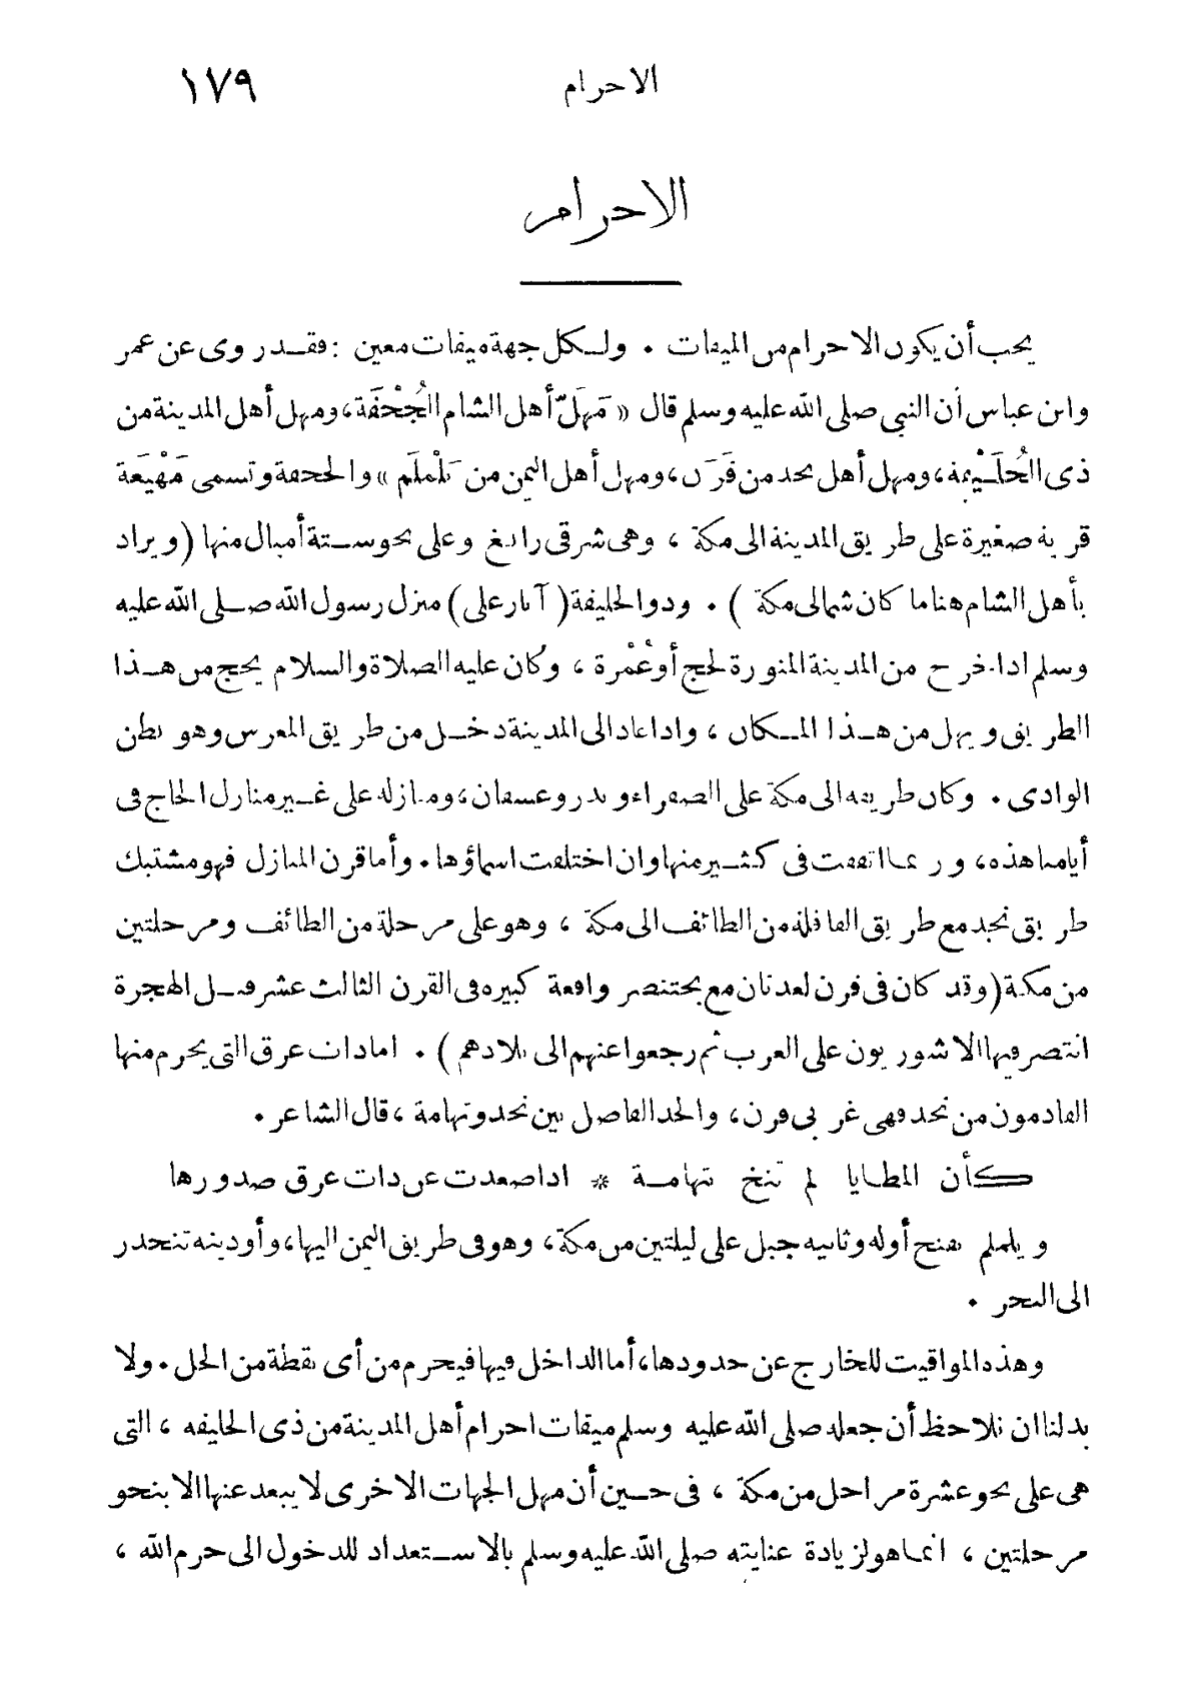 ١٧٩
الاحرام
الاحرام
يجب أن يكون الاحرام من الميقات . ولكل جهة ميقات معين : فقد روى عن عمر
وابن عباس أن النبى صلى الله عليه وسلم قال « مَهَلّ أهل الشام الجُحْفَة ، ومهل أهل المدينة من
ذى الحُلَيْفة ، ومهل أهل نجد من قَرَن ، ومهل أهل اليمن من يَلَمْلَم » والجحفة وتسمى مَهْيَعَة
قرية صغيرة على طريق المدينة الى مكة ، وهى شرقى رابغ وعلى نحو ستة أميال منها ( ويراد
بأهل الشام هنا ما كان شمالى مكة ) . وذو الحليفة ( آبار على ) منزل رسول الله صلى الله عليه
وسلم اذا خرج من المدينة المنورة لحج أو عُمْرة ، وكان عليه الصلاة والسلام يحج من هذا
الطريق ويهل من هذا المكان ، واذا عاد الى المدينة دخل من طريق المعرس وهو بطن
الوادى . وكان طريقه الى مكة على الصفراء وبدر وعسفان ، ومنازله على غير منازل الحاج فى
أيامنا هذه ، وربما اتفقت فى كثير منها وان اختلفت اسماؤها . وأما قرن المنازل فهو مشتبك
طريق نجد مع طريق القافلة من الطائف الى مكة ، وهو على مرحلة من الطائف ومرحلتين
من مكة ( وقد كان فى قرن لعدنان مع بختنصر واقعة كبيره فى القرن الثالث عشر قبل الهجرة
انتصر فيها الاشوريون على العرب ثم رجعوا عنهم الى بلادهم ) . اما ذات عرق التى يحرم منها
القادمون من نجد فهى غربى قرن ، والحد الفاصل بين نجد وتهامة ، قال الشاعر .
كأن المطايا لم تنخ بتهامة * اذا صعدت عن ذات عرق صدورها
ويلملم بفتح أوله وثانيه جبل على ليلتين من مكة ، وهو فى طريق اليمن اليها ، وأوديته تنحدر
الى البحر .
وهذه المواقيت للخارج عن حدودها ، أما الداخل فيها فيحرم من أى نقطة من الحل . ولا
بد لنا ان نلاحظ أن جعله صلى الله عليه وسلم ميقات احرام أهل المدينة من ذى الحليفه ، التى
هى على نحو عشرة مراحل من مكة ، فى حين أن مهل الجهات الاخرى لا يبعد عنها الا بنحو
مرحلتين ، انما هو لزيادة عنايته صلى الله عليه وسلم بالاستعداد للدخول الى حرم الله ،